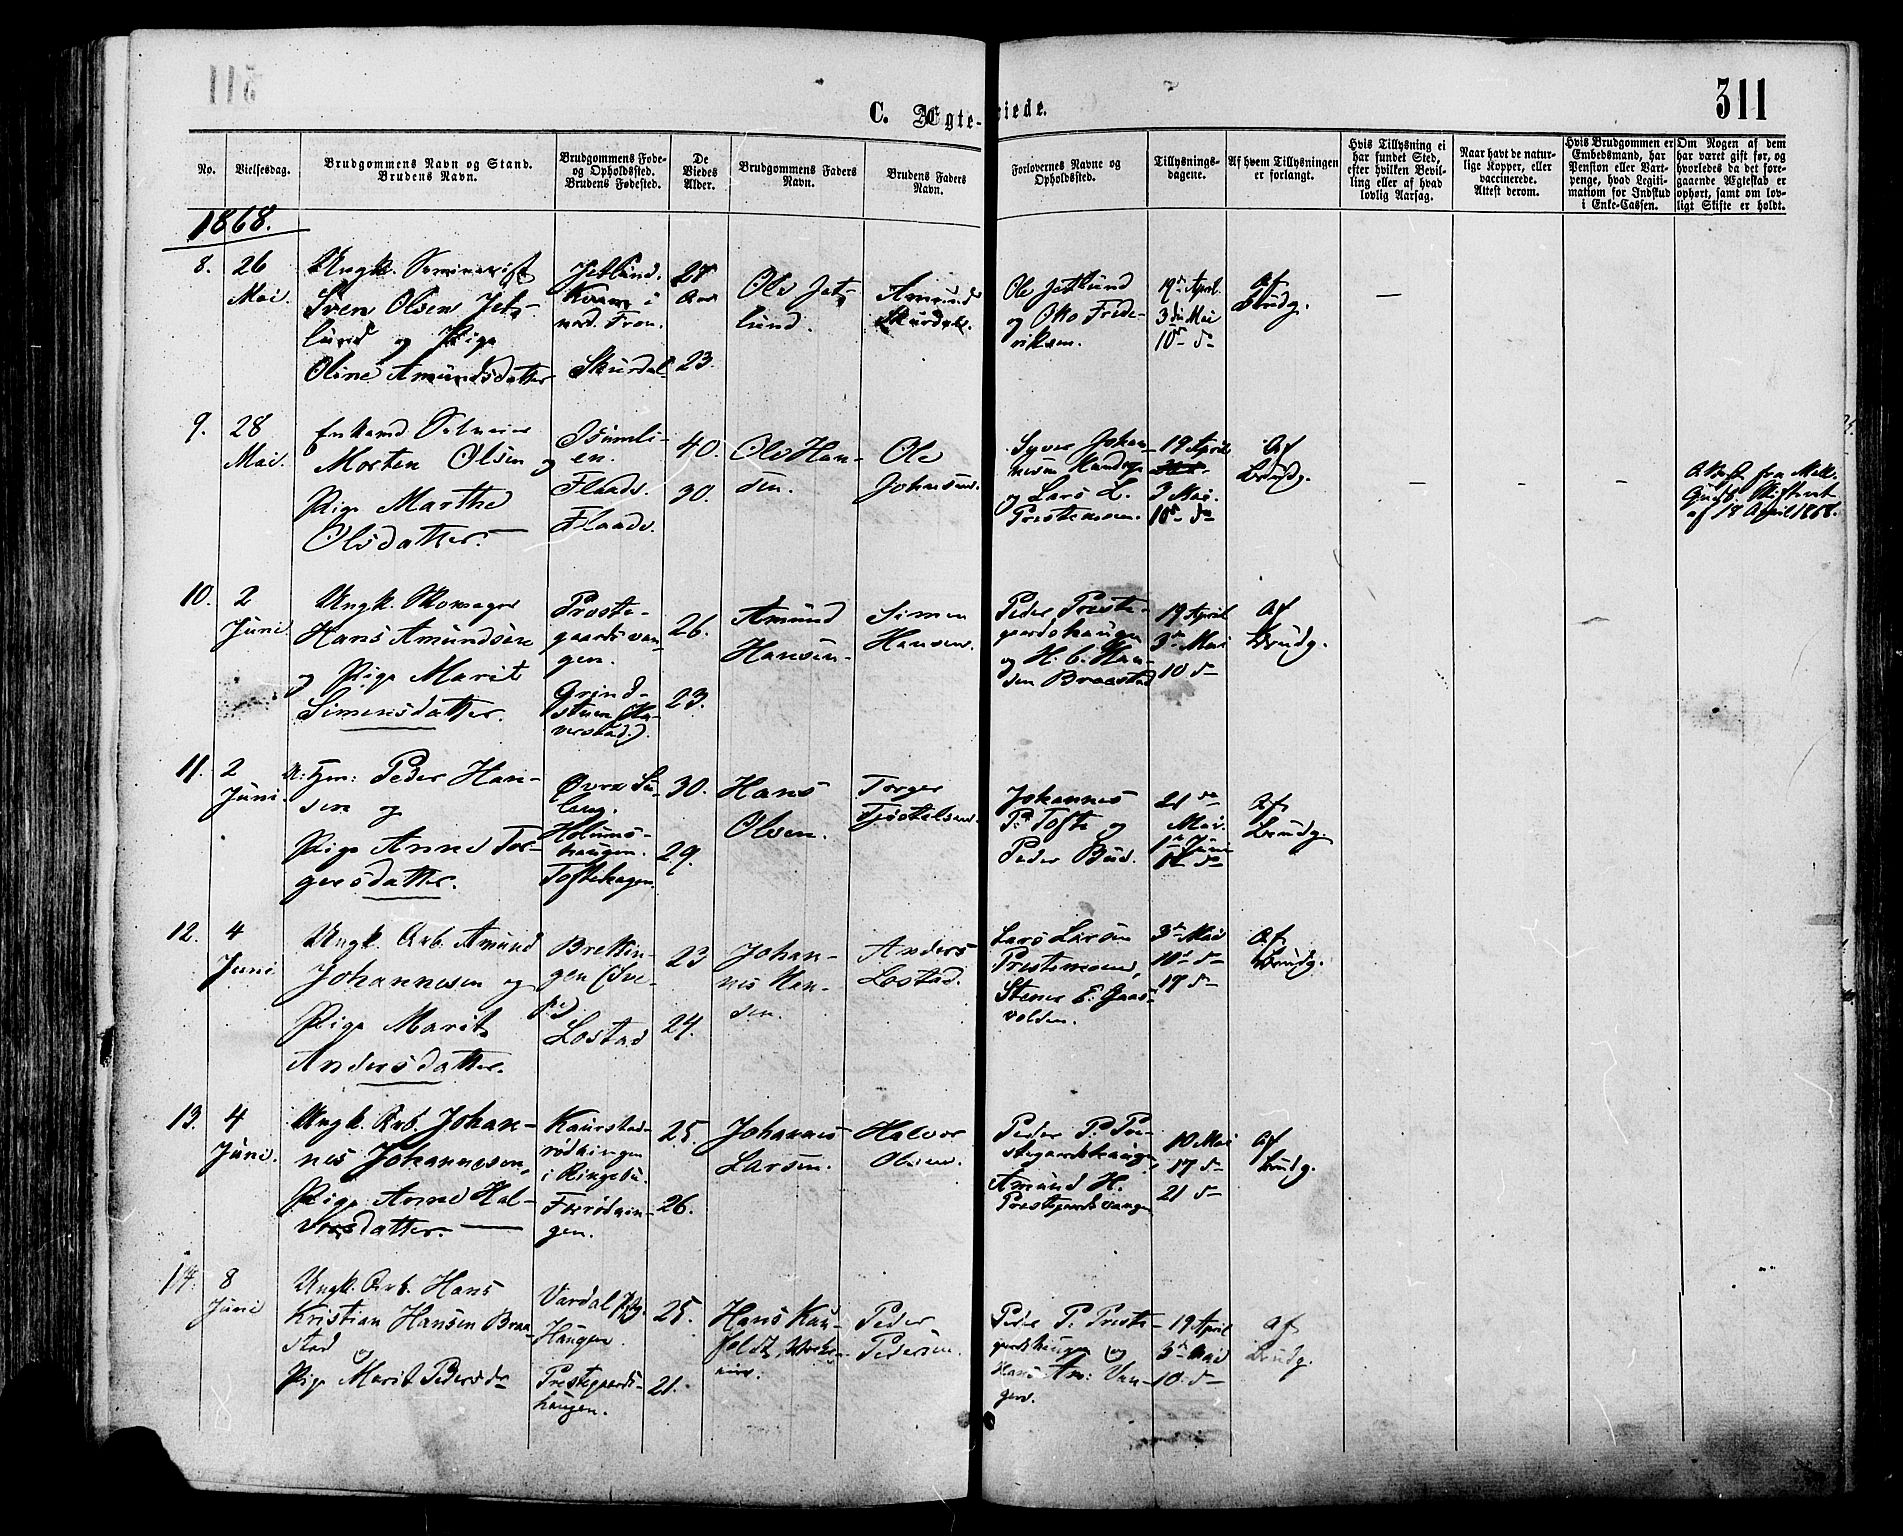 311
C. Ægteviede.
No.
Vielsesdag.
Brudgommens Navn og Stand.
Brudens Navn.
Brudgommens Føde-
og Opholdssted.
Brudens Fødested.
De
Viedes
Alder.
Brudgommens Faders
Navn.
Brudens Faders
Navn.
Forlovernes Navne og
Opholdssted.
Tillysnings-
dagene.
Af hvem Tillysningen
er forlangt.
Hvis Tillysning ei
har fundet Sted,
efter hvilken Bevil-
ling eller af hvad
lovlig Aarsag.
Naar havt de natur-
lige Kopper, eller
vaccinerede.
Attest derom.
Hvis Brudgommen er
Embedsmand, har
Pension eller Vart-
penge, hvad Legiti-
mation for Indskud
i Enke-Cassen.
Om Nogen af dem
har været gift før, og
hvorledes da det fore-
gaaende Ægteskab er
ophørt, samt om lov-
ligt Skifte er holdt.
1868.
8.
26
Mai.
Ungk. Seminarist
Sven Olsen Jets-
lund og Pige
Oline Amundsdatter
Jetlund.
Kvam i
nord. Fron.
Skurdal
27
Aar
23.
Ole Jets
lund.
Amund
Skurdal.
Ole Jetlund
og Frede-
riksen.
19de April
3die Mai
10de do
Af
Brudg.
9.
28
Mai.
Enkemd
Morten Olsen og
Pige Marthe
Olsdatter.
en.
Flaade.
Flaade.
40.
30.
Ole Han-
sen.
Ole
Johansen.
Syver Johan-
nesen
og Lars L.
Prestemoen.
19 April
3 Mai.
10de do
Af
Brudg.
Attest fra
Skifteret
af 18 April 1868.
10.
2
Juni.
Ungk. Skomager
Hans Amundsen
og Pige Marit
Simensdatter.
Preste-
gaardsvan-
gen.
Grind-
stuen
26.
23.
Amund
Hansen
Simen
Hansen.
Peder Preste-
gaardshaugen
og H. C. Han-
sen Braastad
19 April
3de Mai
10 do
Af
Brudg.
11.
2
Juni.
Peder Han-
sen og
Pige Anne Tor-
gersdatter.
Øvre
Holums-
haugen.
Toftehagen.
30.
29.
Hans
Olsen.
Torger
Tjøstelsen.
Johannes
P. Tofte og
Peder Bud.
21 de
Mai.
1ste Juni
do
Af
Brudg.
12.
4
Juni
Ungk. Arb. Amund
Johannesen og
Pige Marit
Andersdatter.
Brettin-
gen
Lostad
23
24.
Johan-
nes Han-
sen.
Anders
Lostad.
Lars Larsen
Prestemoen,
Stener E. Gaas-
volden.
3de Mai
10de do
17 do
Af
Brudg.
13.
4
Juni.
Ungk. Arb. Johan-
nes Johannesen,
Pige Anne Hal-
vorsdatter.
Kaurstad-
rødningen
i Ringebu.
gen.
25.
26.
Johannes
Larsen.
Halvor
Olsen.
Peder P. Pre-
stegaardshaugen,
Amund H.
Prestegaardsvangen
10 Mai
17 do
21 do
Af
Brudg.
14.
8
Juni
Ungk. Arb. Hans
Kristian Hansen Braa-
stad og
Pige Marit Pedersdr
Vardal Pg.
Haugen.
Prestegaards-
haugen.
25.
21.
Hans
Peder
Pedersen.
Peder P. Preste-
gaardshaugen og
Hans Am: Van-
gen.
19 April
3de Mai
10 do
Af
Brudg.